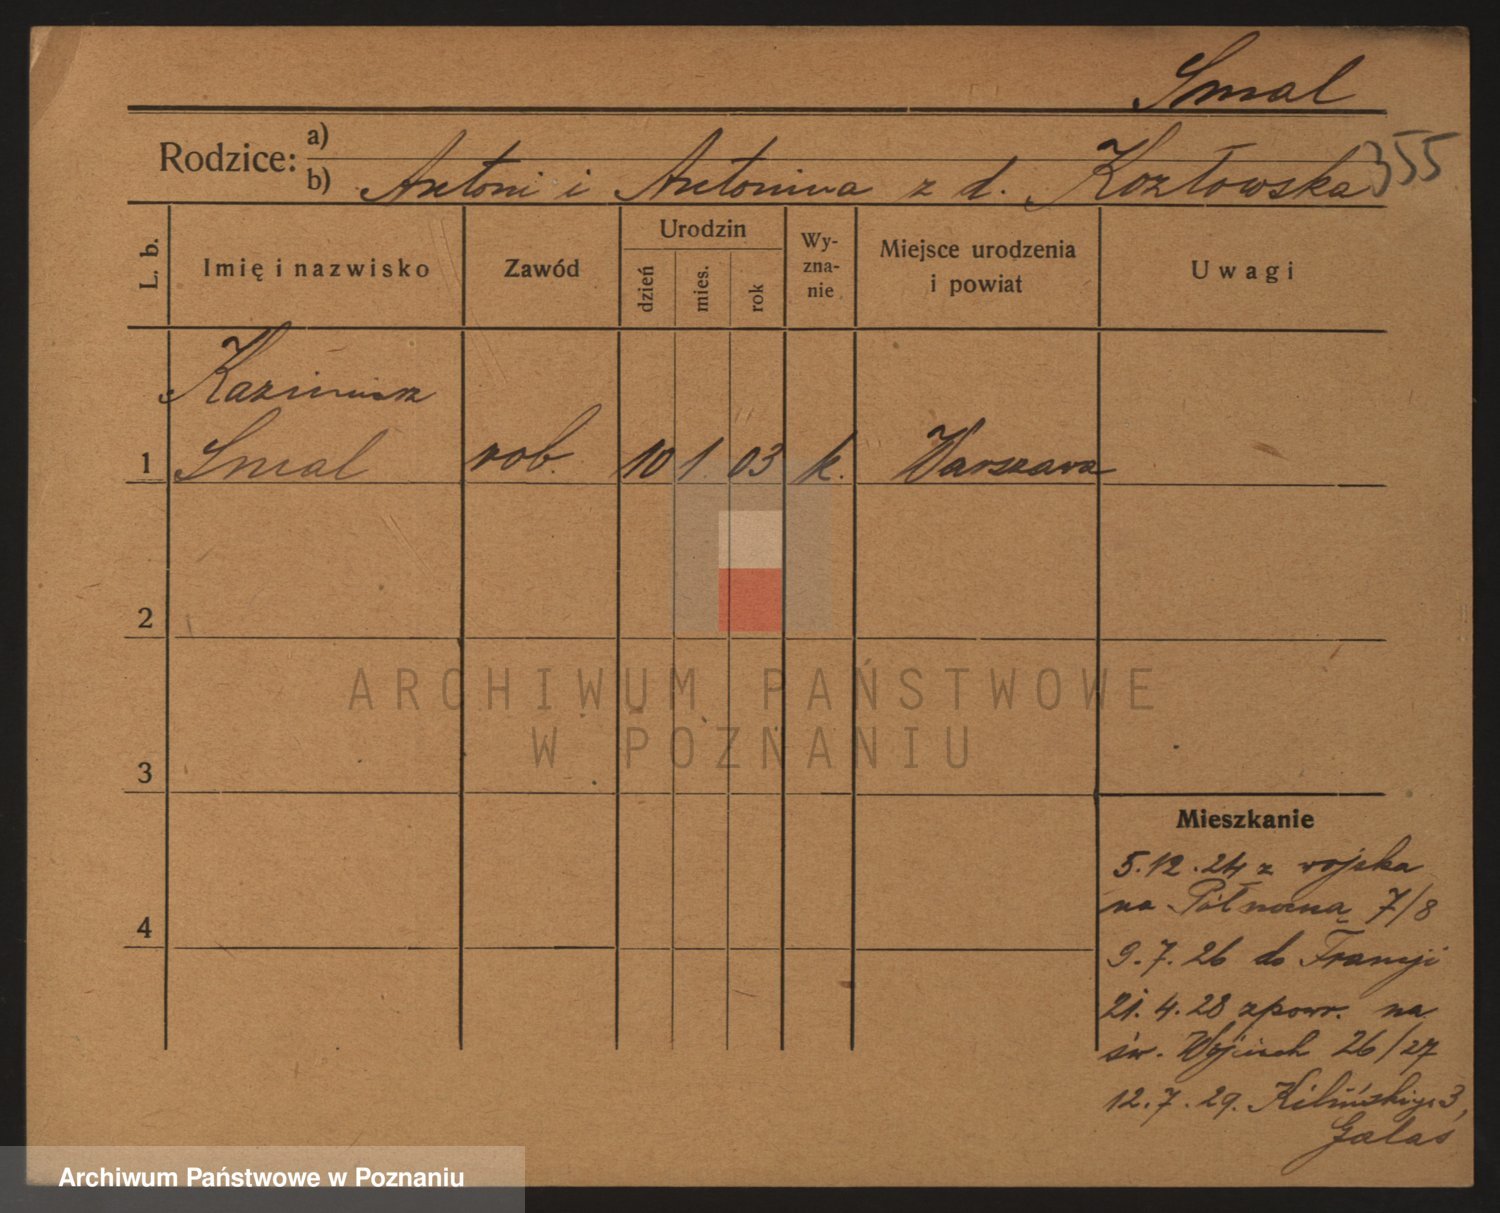 Smal
Rodzice: a)
b) Antoni i Antonina z d. Kozłowska 355
L. b. Imię i nazwisko Zawód Urodzin dzień mies. rok Wy-zna-nie Miejsce urodzenia i powiat Uwagi
Kazimierz
1 Smal rob. 10 1. 03 k. Warszawa
2
ARCHIWUM PAŃSTWOWE
W POZNANIU
3
Mieszkanie
5.12.24 z wojska
na Północną 7/8
4
9.7.26 do Francji
21.4.28 zpowr. na
św. Wojciech 26/27
12.7.29. Kilińskiego 3,
Galas
Archiwum Państwowe w Poznaniu